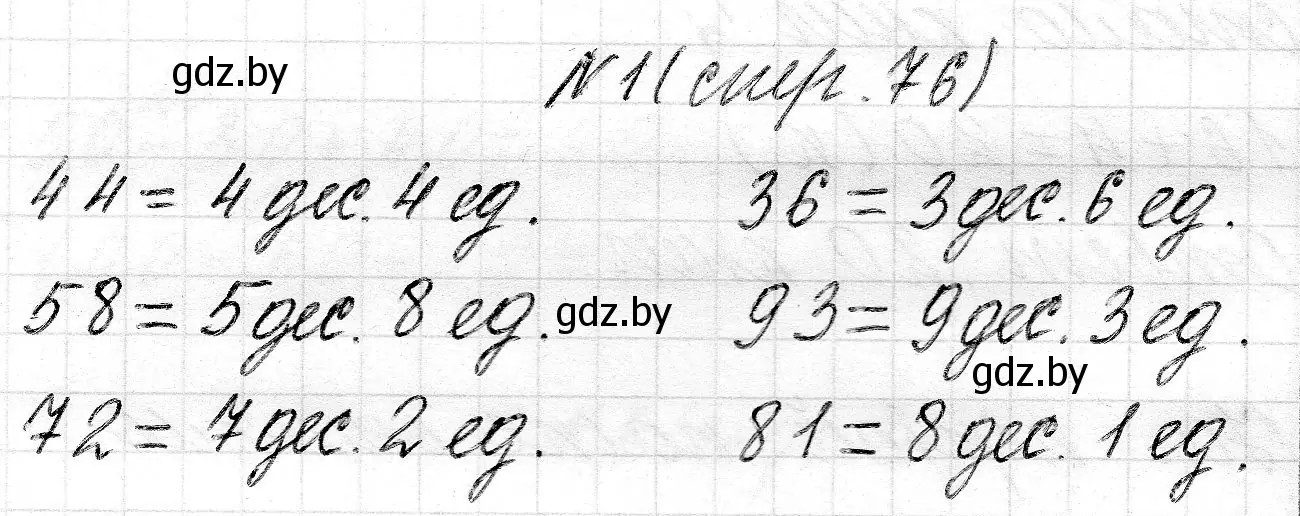 gdz.by
№ 1 (стр. 76)
44 = 4 дес. 4 ед. 36 = 3 дес. 6 ед.
58 = 5 дес. 8 ед. gdz.by 93 = 9 дес. 3 ед.
gdz.by
72 = 7 дес. 2 ед. 81 = 8 дес. 1 ед.